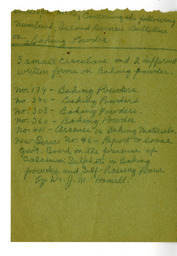 containing the following
numbered Inland Revenue Bulletins
on Baking Powder
3 small circulars and 2 different
written forms on Baking powder.
No. 174 - Baking Powders
no. 270 - Baking Powders
no. 303 - Baking Powders
no. 360 - Baking Powder
no. 411 - Arsenic in Baking Materials
New Series No. 46 - Report to Local
Gov't. Board on the presence of
Calcium Sulphate in Baking
powder and Self-Raising Flour
by Dr. J. M. Hamill.